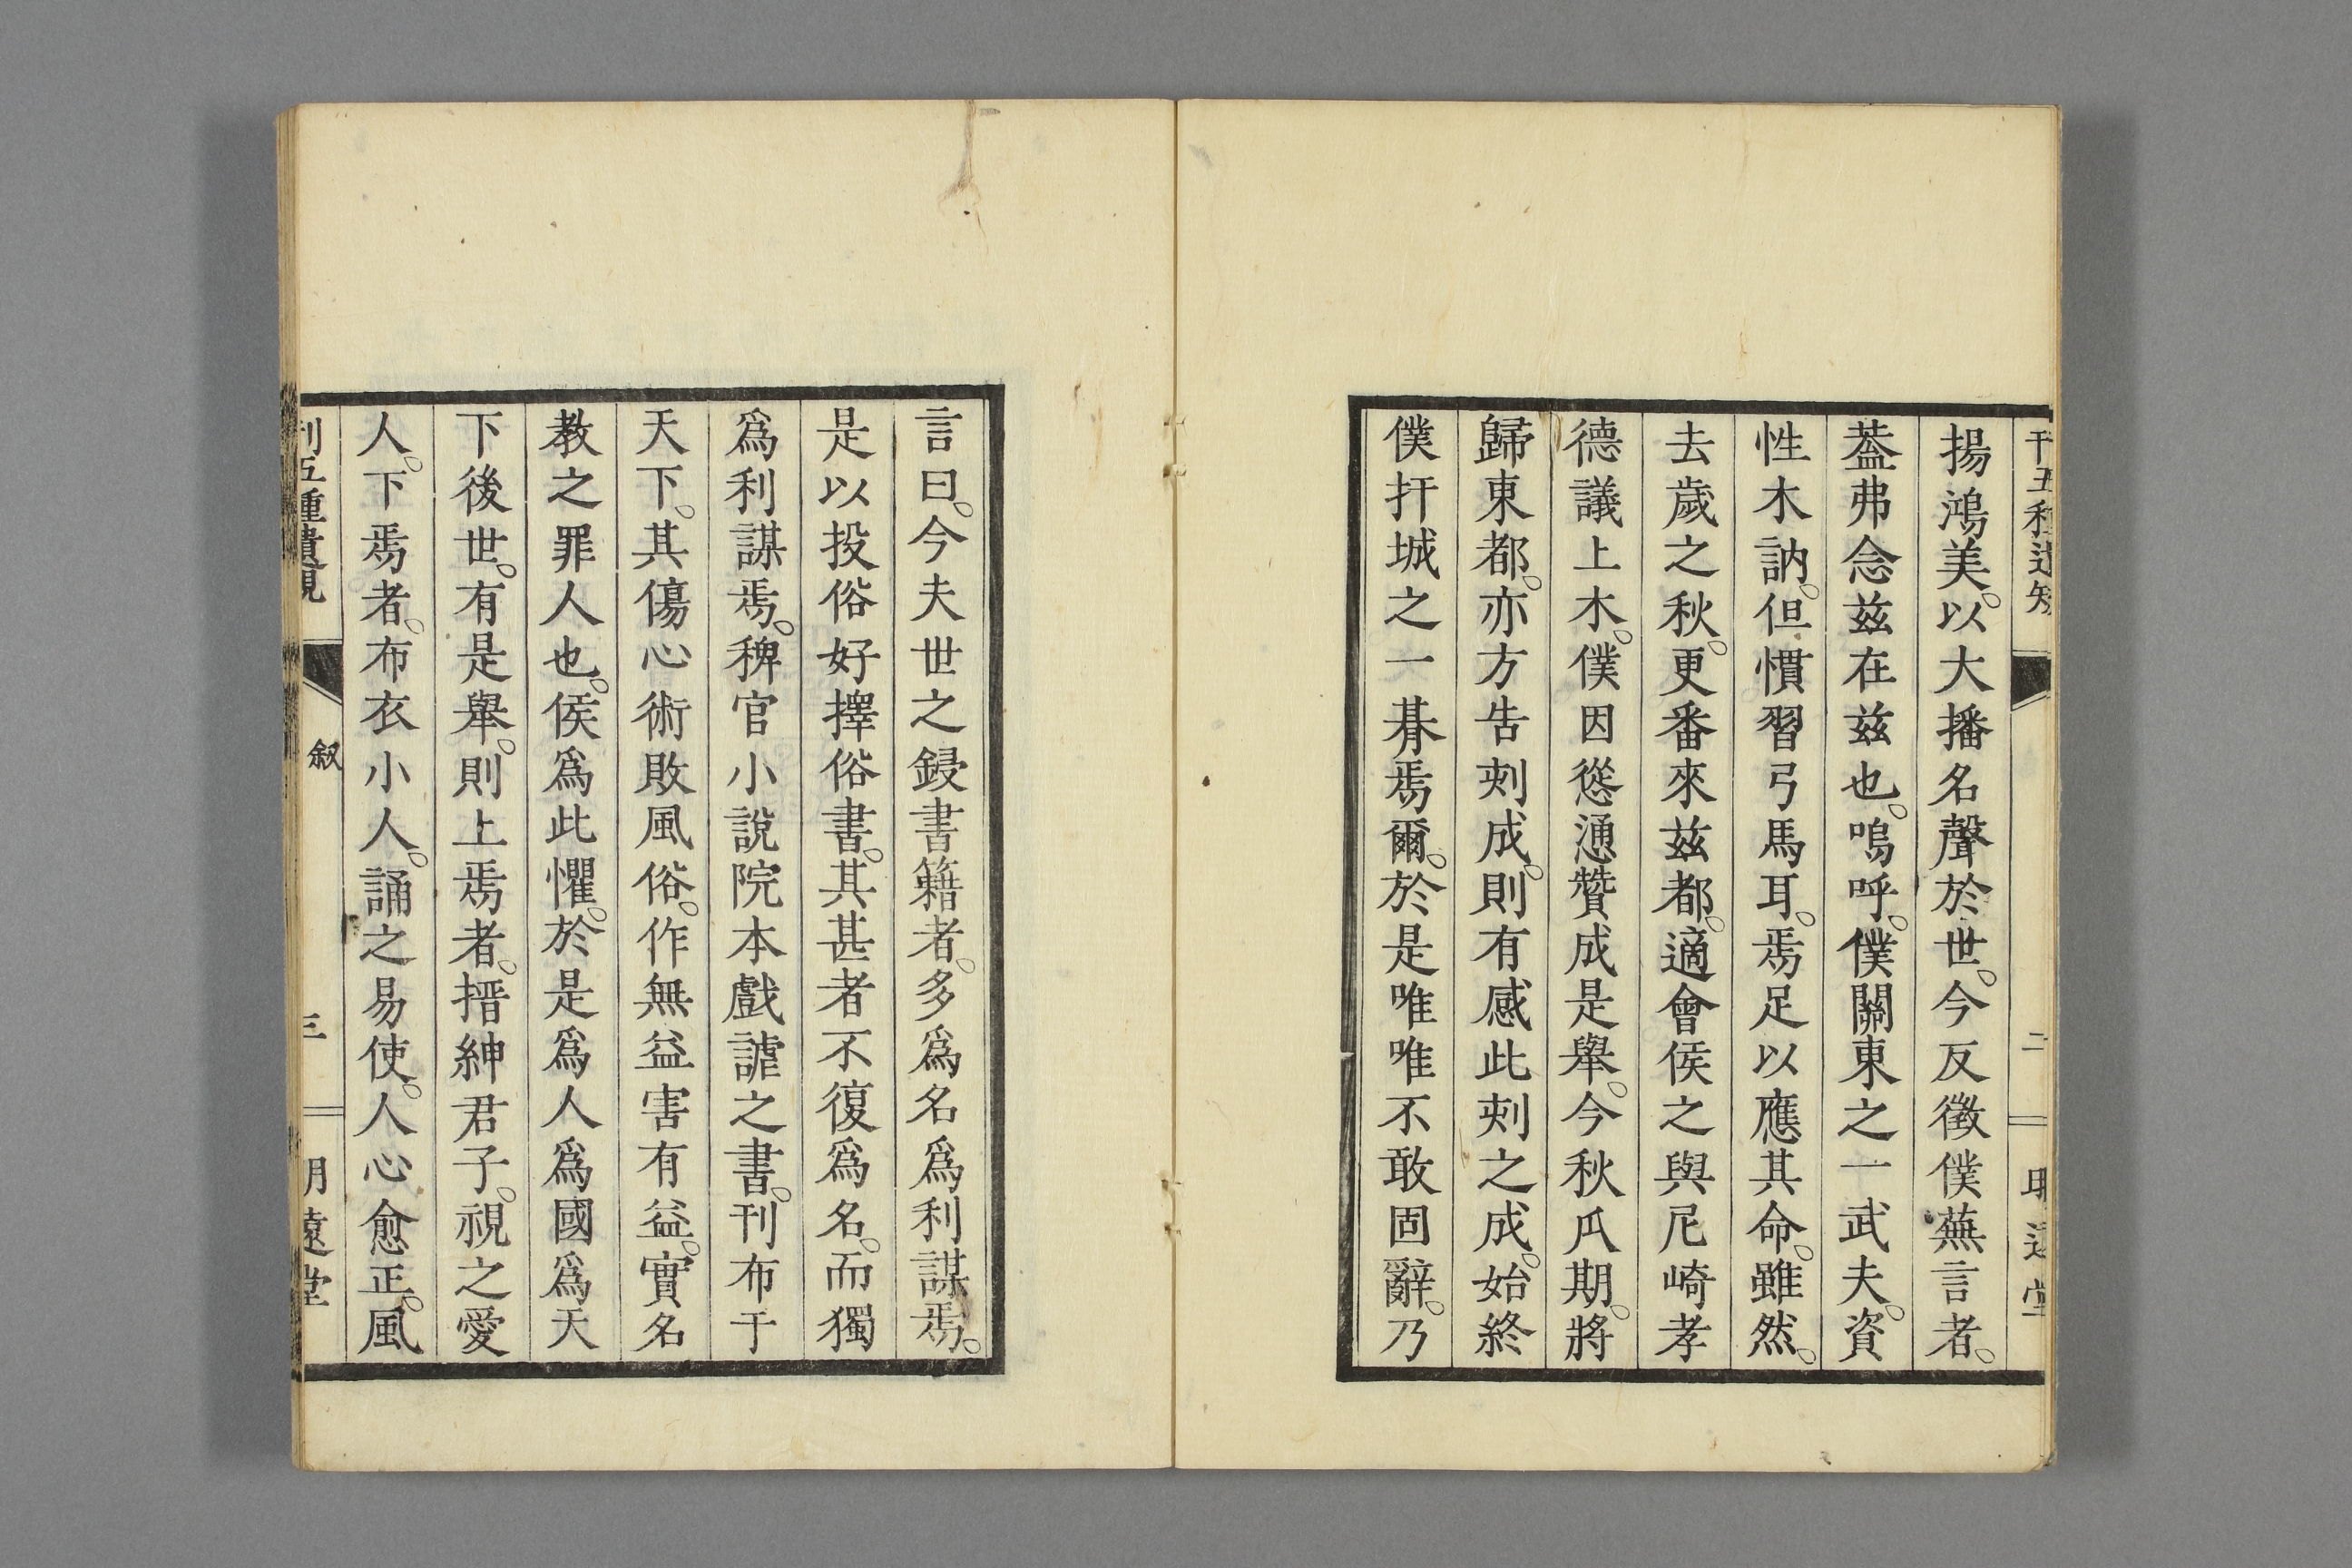 揚鴻美。以大播名聲於世。今反徵僕蕪言者。
葢弗念玆在玆也。嗚呼。僕關東之一武夫。資
性木訥。但慣習弓馬耳。焉足以應其命。雖然。
去歲之秋。更番來玆都。適會侯之與尼崎孝
德議上木。僕因慫慂贊成是舉。今秋瓜期。將
歸東都。亦方告刾成。則有感此刾之成。始終
僕扞城之一朞焉爾。於是唯唯不敢固辭。乃
言曰。今夫世之鋟書籍者。多爲名爲利謀焉。
是以投俗好擇俗書。其甚者不復爲名。而獨
爲利謀焉。稗官小說院本戲謔之書。刊布于
天下。其傷心術敗風俗。作無益害有益。實名
教之罪人也。侯爲此懼。於是爲人爲國爲天
下後世。有是舉。則上焉者。搢紳君子。視之愛
人。下焉者。布衣小人。誦之易使。人心愈正。風
刊五種遺規
叙
三
明遠堂